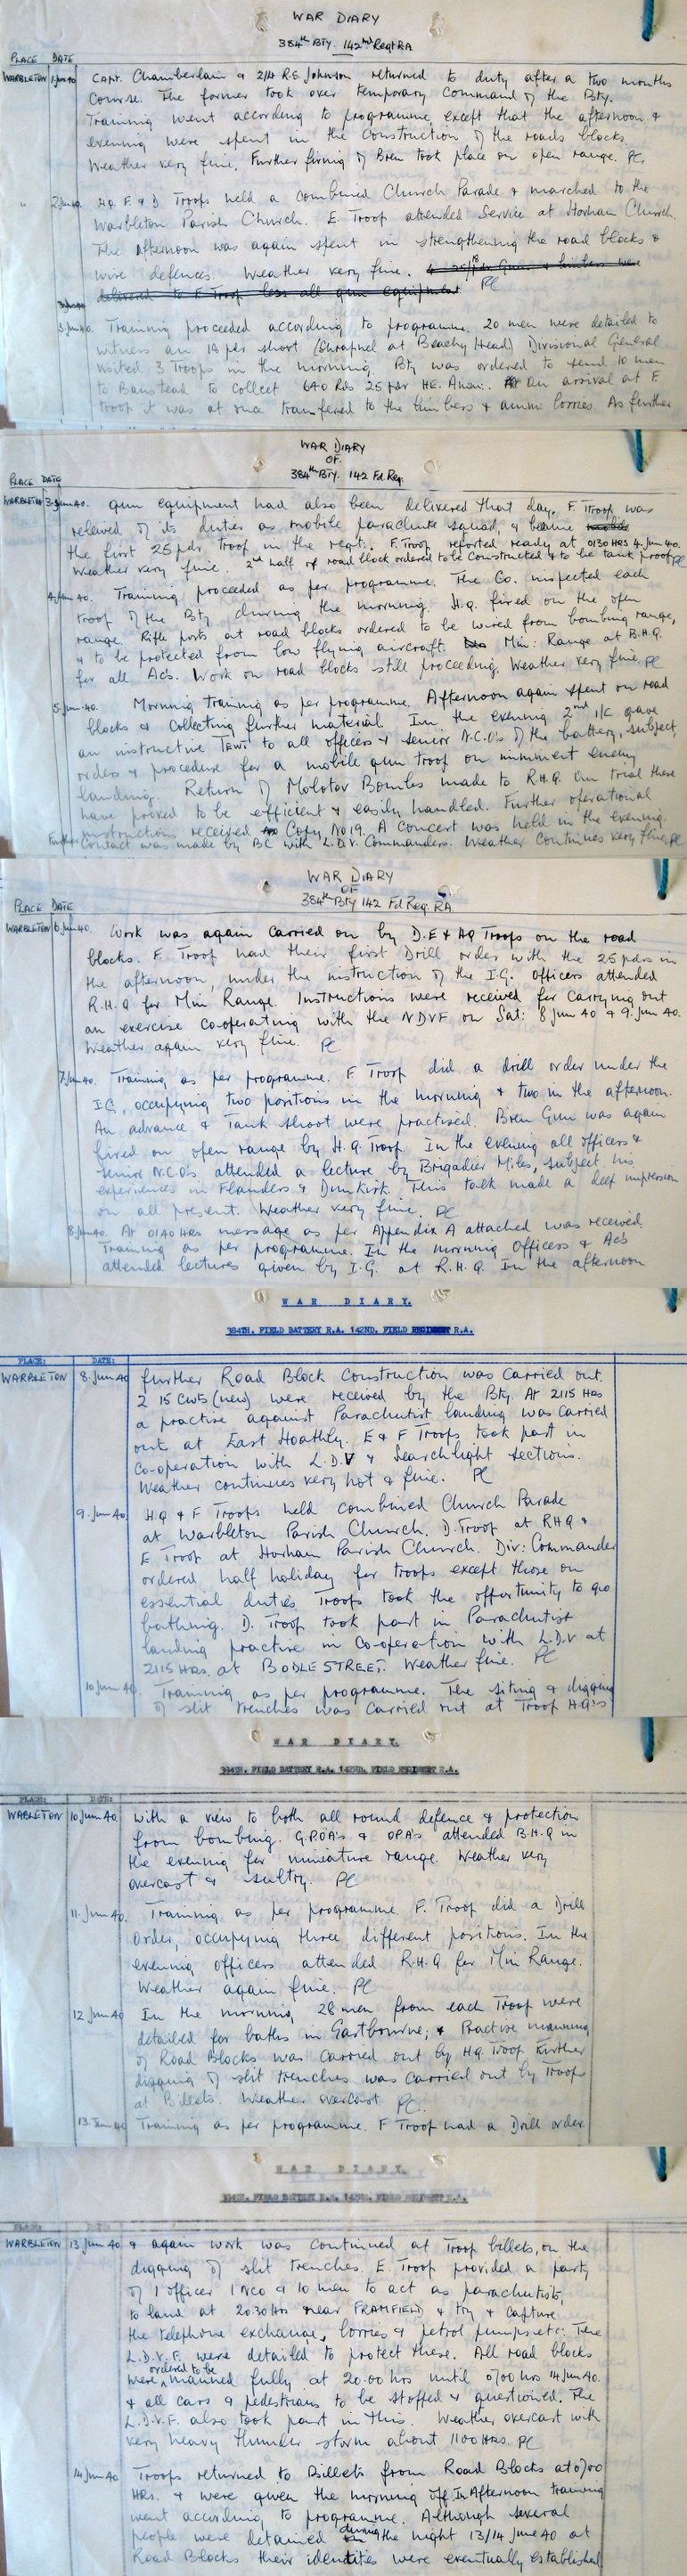 WAR DIARY
384th Bty. 142nd Regt RA
PLACE DATE
WARBLETON 1 Jun 40 Capt. Chamberlain & 2/Lt R.E. Johnson returned to duty after a two months
Course. The former took over temporary Command of the Bty.
Training went according to programme, except that the afternoon &
evening were spent in the Construction of the roads blocks.
Weather very fine. Further firing of Bren took place on open range. PC.
" 2 Jun 40. HQ. F & D Troops held a combined Church Parade & marched to the
Warbleton Parish Church. E. Troop attended Service at Horham Church.
The afternoon was again spent in strengthening the road blocks &
wire defences. Weather very fine. 4 25/pdr Guns & limbers were
delivered to F Troop less all gun equipment PC
3 Jun 40
3 Jun 40. Training proceeded according to programme. 20 men were detailed to
witness an 18 pdr shoot (Shrapnel at Beachy Head) Divisional General
visited 3 Troops in the morning. Bty was ordered to send 10 men
to Banstead to collect 640 Rds 25 pdr HE. Amm. On arrival at F.
troop it was at once transferred to the limbers & ammn lorries. As further
WAR DIARY
OF.
384th Bty. 142 Fd Reg.
PLACE DATE
WARBLETON 3 Jun 40. gun equipment had also been delivered that day. F. Troop was
releaved of its duties as mobile parachute squad, & became
the first 25 pdr troop in the regt. F. Troop reported ready at 0130 HRS 4. Jun 40.
Weather very fine. 2nd half of road block ordered to be constructed & to be tank proof PC
4. Jun 40. Training proceeded as per programme. The Co. inspected each
troop of the Bty during the morning. H.Q. fired on the open
range. Rifle ports at road blocks ordered to be wired from bombing range,
& to be protected from low flying aircraft. Min: Range at B.H.Q.
for all Acks. Work on road blocks still proceeding. Weather very fine. PC
5. Jun 40. Morning training as per programme. Afternoon again spent on road
blocks & Collecting further material. In the evening 2nd i/c gave
an instructive TEWT to all officers & senior N.C.O's of the battery, subject,
orders & procedure for a mobile gun troop on imminent enemy
landing. Return of Molotov Bombs made to R.H.Q. On trial these
have proved to be efficient & easily handled. Further operational
instructions received Copy No 19. A concert was held in the evening.
Further Contact was made by BC with L.D.V. Commanders. Weather Continues very fine. PC
WAR DIARY
OF
384th Bty 142 Fd Reg. RA
PLACE DATE
WARBLETON 6 Jun 40. Work was again carried on by D.E & HQ Troops on the road
blocks. F. Troop had their first Drill order with the 25 pdrs in
the afternoon, under the instruction of the I.G. Officers attended
R.H.Q for Min Range. Instructions were received for Carrying out
an exercise Co-operating with the NDVF on Sat: 8 Jun 40 & 9. Jun 40.
Weather again very fine. PC
7. Jun 40. Training as per programme. F. Troop did a drill order under the
I.G, occupying two positions in the morning & two in the afternoon.
An advance & Tank shoot were practised. Bren Gun was again
fired on open range by H.Q. Troop. In the evening all officers &
senior N.C.O's attended a lecture by Brigadier Miles, subject his
experiences in Flanders & Dunkirk. This talk made a deep impression
on all present. Weather very fine. PC
8. Jun 40. At 0140 HRS message as per Appendix A attached was received.
Training as per programme. In the morning Officers & Acks
attended lectures given by I.G. at R.H.Q. In the afternoon
WAR DIARY.
384TH. FIELD BATTERY R.A. 142ND. FIELD REGIMENT R.A.
PLACE: DATE:
WARBLETON 8. Jun 40 further Road Block Construction was Carried out.
2 15 Cwts (new) were received by the Bty. At 2115 HRS
a practise against Parachutist landing was Carried
out at East Hoathly. E & F Troops took part in
Co-operation with L.D.V & Searchlight Sections.
Weather continues very hot & fine. PC
9. Jun 40 H.Q & F Troops held combined Church Parade
at Warbleton Parish Church. D. Troop at RHQ &
E Troop at Horham Parish Church. Div: Commander
ordered half holiday for troops except those on
essential duties. Troops took the opportunity to go
bathing. D. Troop took part in Parachutist
landing practise in Co-operation with L.D.V at
2115 HRS. at BODLE STREET. Weather fine. PC
10 Jun 40. Training as per programme. The siting & digging
of slit trenches was Carried out at Troop HQ's
WAR DIARY.
384TH. FIELD BATTERY R.A. 142ND. FIELD REGIMENT R.A.
PLACE: DATE:
WABLETON 10 Jun 40. with a view to both all round defence & protection
from bombing. G.POA's & OPA's attended B.H.Q in
the evening for miniature range. Weather very
overcast & sultry. PC
11. Jun 40. Training as per programme. F. Troop did a Drill
Order, occupying three different positions. In the
evening officers attended R.H.Q for Min Range.
Weather again fine. PC
12 Jun 40 In the morning, 28 men from each Troop were
detailed for baths in Eastbourne, & Practise manning
of Road Blocks was Carried out by HQ. Troop. Further
digging of slit trenches was carried out by Troops
at Billets. Weather overcast PC.
13. Jun 40 Training as per programme. F Troop had a Drill order.
WAR DIARY.
384TH. FIELD BATTERY R.A. 142ND. FIELD REGIMENT R.A.
PLACE: DATE:
WARBLETON 13 Jun 40 & again work was continued at Troop billets, on the
digging of slit trenches. E. Troop provided a party
of 1 officer 1 NCO & 10 men to act as parachutists,
to land at 2030 Hrs near FRAMFIELD & try & capture
the telephone exchange, lorries & petrol pumps etc. The
L.D.V.F. were detailed to protect these. All road blocks
ordered to be
were manned fully at 20.00 hrs until 0700 hrs 14 Jun 40.
& all cars & pedestrians to be stopped & questioned. The
L.D.V.F. also took part in this. Weather overcast with
very heavy thunder storm about 1100 HRS. PC
14 Jun 40 Troops returned to Billets from Road Blocks at 0700
HRS. & were given the morning off. In Afternoon training
went according to programme. Although several
people were detained during the night 13/14 June 40 at
Road Blocks their identities were eventually established